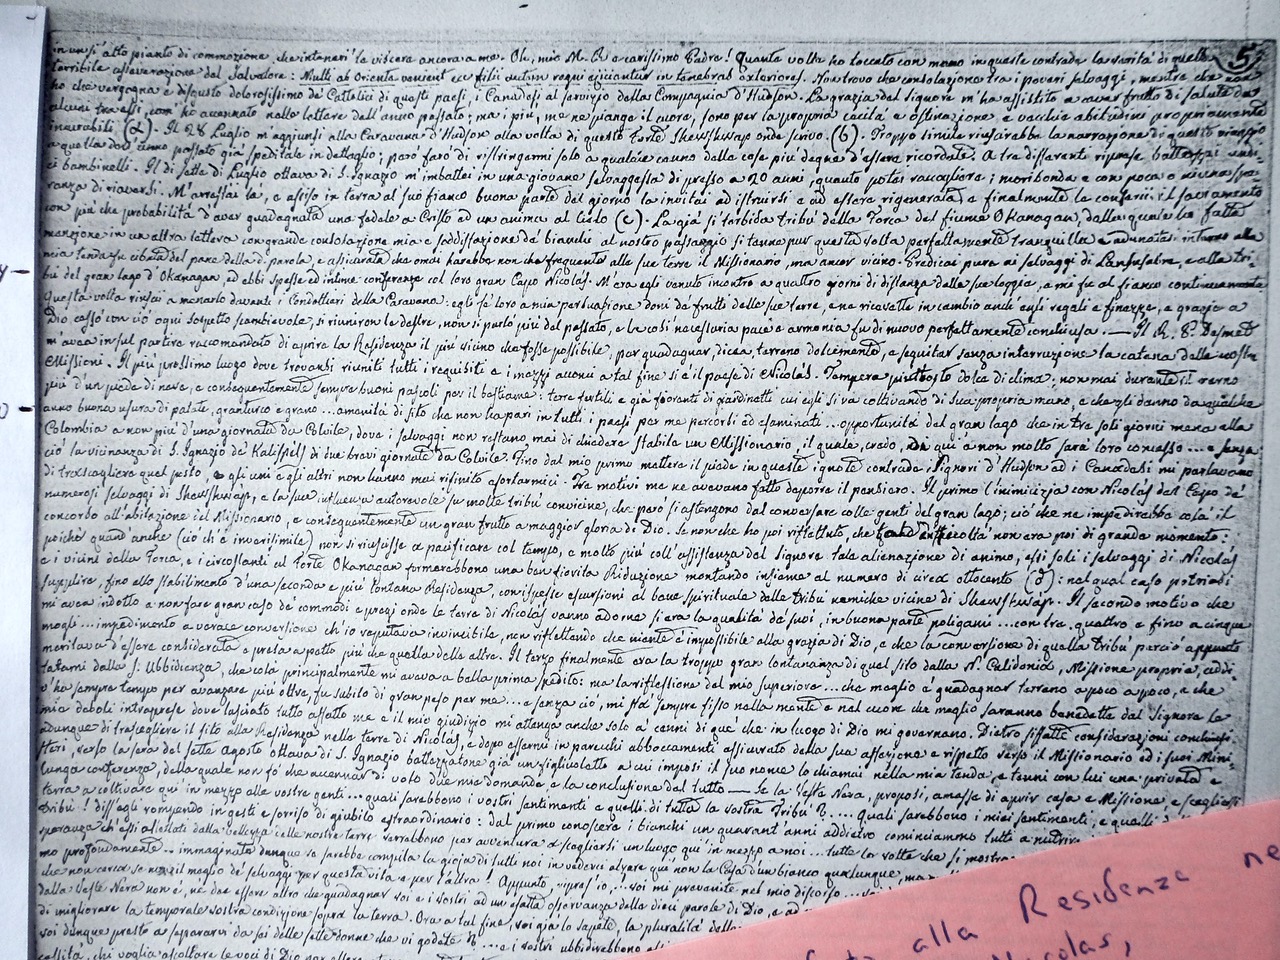 in un sì alto pianto di commozione che intenerì le viscere ancora a me. Oh, mio M. R. e carissimo Padre! Quante volte ho toccato con mano in queste contrade la verità di quella
5
terribile asseverazione del Salvatore: Multi ab Oriente venient etc filii autem regni ejicientur in tenebras exteriores. Non trovo che consolazione tra i poveri selvaggi, mentre che non
ho che vergogna e disgusto dolorosissimo de' Cattolici di questi paesi, i Canadesi al servizio della Compagnia d'Hudson. La grazia del Signore m'ha assistito a cavar frutto di salute da
alcuni tra essi, com' ho accennato nelle lettere dell'anno passato; ma i più, me ne piange il cuore, sono per la propria cecità e ostinazione, e vecchie abitudini propriamente
incurabili. (a). Il 28 Luglio m'aggiunsi alla Caravana d'Hudson alla volta di questo Forte Shewshwap onde scrivo. (b). Troppo simile riuscirebbe la narrazione di questo viaggio
a quella dell'anno passato già speditale in dettaglio; però farò di restringermi solo a qualche cenno delle cose più degne d'essere ricordate. A tre differenti riprese battezzai
bambinelli. Il dì sette di Luglio ottava di S. Ignazio m'imbattei in una giovane selvaggessa di presso a 20 anni, quanto potei raccogliere; moribonda e con poca o niuna spe-
ranza di riaversi. M'arrestai là, e assiso in terra al suo fianco buona parte del giorno la invitai ad istruirsi e ad essere rigenerata e finalmente le conferii il sacramento
con più che probabilità d'aver guadagnata una fedele a Cristo ed un anima al Cielo (c). La già sì torbida tribù della Forca del fiume Okanagan, della quale ho fatto
menzione in un altra lettera con grande consolazione mia e soddisfazione de' bianchi al nostro passaggio si tenne pur questa volta perfettamente tranquilla e adunata intorno alla
mia tenda fu cibata del pane della d. parola, e assicurata che omai farebbe non che frequente alle sue terre il Missionario, ma ancor vicino. Predicai pure ai selvaggi di e alla tri-
bù del gran lago d'Okanagan ed ebbi spesse ed intime conferenze col loro gran Capo Nicolas. M'era egli venuto incontro a quattro giorni di distanza dalle sue loggie, e mi fu al fianco continuamente
Questa volta riuscii a menarlo davanti i Condottieri della Caravana: egli fè loro a mia persuasione doni de' frutti delle sue terre, e ne ricevette in cambio anch'egli regali e finezze, e grazie a
Dio cessò con ciò ogni sospetto scambievole, si riunirono le destre, non si parlò più del passato, e la così necessaria pace e armonia fu di nuovo perfettamente conchiusa. — Il R. P. Desmet
m'avea in sul partire raccomandato di aprire la Residenza il più vicino che fosse possibile, per guadagnar, dicea, terreno dolcemente, e seguitar senza interruzione la catena delle nostre
Missioni. Il più prossimo luogo dove trovansi riuniti tutti i requisiti e i mezzi acconci a tal fine si è il paese di Nicolas. Tempera piuttosto dolce di clima, non mai durante il verno
più d'un piede di neve, e conseguentemente sempre buoni pascoli per il bestiame: terre fertili e già fiorenti di giardinetti cui egli si va coltivando di sua propria mano, e che gli danno da qualche
anno buona usura di patate, granturco e grano... amenità di sito che non ha pari in tutti i paesi per me percorsi ed esaminati... opportunità del gran lago che in tre soli giorni mena alla
Colombia e non più d'una giornata da Colvile, dove i selvaggi non restano mai di chiedere stabile un Missionario, il quale, credo, di qui a non molto sarà loro concesso... e senza
ciò la vicinanza di S. Ignazio de' Kalispels di due brevi giornate da Colvile. Fino dal mio primo mettere il piede in queste ignote contrade i Signori d'Hudson ed i Canadesi mi parlavano
di trascegliere quel posto, e gli uni e gli altri non hanno mai rifinito esortarmici. Tre motivi me ne aveano fatto deporre il pensiero. Il primo l'inimicizia con Nicolas del Capo de'
numerosi selvaggi di Shewshwap, e la sue influenza autorevole su molte tribù convicine, che però si astengono dal conversare colle genti del gran lago; ciò che ne impedirebbe colà il
concorso all'abitazione del Missionario, e conseguentemente un gran frutto a maggior gloria di Dio. Se non che ho poi riflettuto, che tale difficoltà non era poi di grande momento:
poiché quand'anche (ciò ch'è inverisimile) non si riuscisse a pacificare col tempo, e molto più coll'assistenza del Signore tale alienazione di animo, essi soli i selvaggi di Nicolas
e i vicini della Forca, e i circostanti al Forte Okanagan formerebbono una ben fiorita Riduzione montando insieme al numero di circa ottocento (d): nel qual caso potriasi
supplire, fino allo stabilimento d'una seconda e più lontana Residenza, con ispesse escursioni al bene spirituale delle tribù nemiche vicine di Shewshwap. Il secondo motivo che
mi avea indotto a non fare gran caso de' commodi e pregi onde le terre di Nicolas vanno adorne si era la qualità de' suoi, in buona parte poligami... con tre, quattro e fino a cinque
mogli... impedimento a verace conversione ch'io reputava invincibile, non riflettendo che niente è impossibile alla grazia di Dio, e che la conversione di quella tribù perciò appunto
meritava d'essere considerata e presa a petto più che quella delle altre. Il terzo finalmente era la troppo gran lontananza di quel sito dalla N. Caledonia, Missione propria, addi-
tatami dalla S. Ubbidienza, che colà principalmente mi aveva a bella prima spedito: ma la riflessione del mio superiore... che meglio è guadagnar terreno a poco a poco, e che
v'ha sempre tempo per avanzare più oltre, fu subito di gran peso per me... e senza ciò, mi sta sempre fisso nella mente e nel cuore che meglio saranno benedette dal Signore le
mie deboli intraprese dove lasciato tutto affatto me e il mio giudizio mi attenga anche solo a' cenni di que' che in luogo di Dio mi governano. Dietro siffatte considerazioni conchiusi
adunque di trascegliere il sito alla Residenza nelle terre di Nicolas, e dopo essermi in parecchi abboccamenti assicurato della sua affezione e rispetto verso il Missionario ed i suoi Mini-
steri, verso la sera del sette agosto ottava di S. Ignazio battezzatone già un figlivoletto a cui imposi il suo nome lo chiamai nella mia tenda, e tenni con lui una privata e
lunga conferenza, della quale non fo che accennar di volo due mie domande e la conclusione del tutto — Se la Veste Nera, proposi, amasse di aprir casa e Missione, e scegliesse
terra a coltivare qui in mezzo alle vostre genti... quali sarebbono i vostri sentimenti e quelli di tutta la vostra Tribù?... Quali sarebbono i miei sentimenti, e quelli
tribù! diss'egli rompendo in gesti e sorriso di giubilo estraordinario: dal primo conoscere i bianchi un quarant'anni addietro cominciammo tutti a nutrire
speranza ch'essi allettati dalla bellezza delle nostre terre verrebbono per avventura a scegliersi un luogo qui in mezzo a noi... tutte le volte che si mostra
mo profondamente... immaginate dunque se sarebbe compita la gioja di tutti noi in vedervi alzare qui non la Casa d'un bianco qualunque, ma
che non cerca se non il meglio de' selvaggi per questa vita e per l'altra! Appunto, ripres'io, ... voi mi prevenite nel mio discorso...
dalla Veste Nera non è, nè dee essere altro che guadagnar voi e i vostri ad un'esatta osservanza delle dieci parole di Dio, e ad
di migliorare la temporale vostra condizione sopra la terra. Ora a tal fine, voi già lo sapete, la pluralità delle
voi dunque presto a separarvi da sei delle sette donne che vi godete?... e i vostri ubbidirebbono
che voglia ascoltare le voci di Dio
alla Residenza ne
Nicolas,